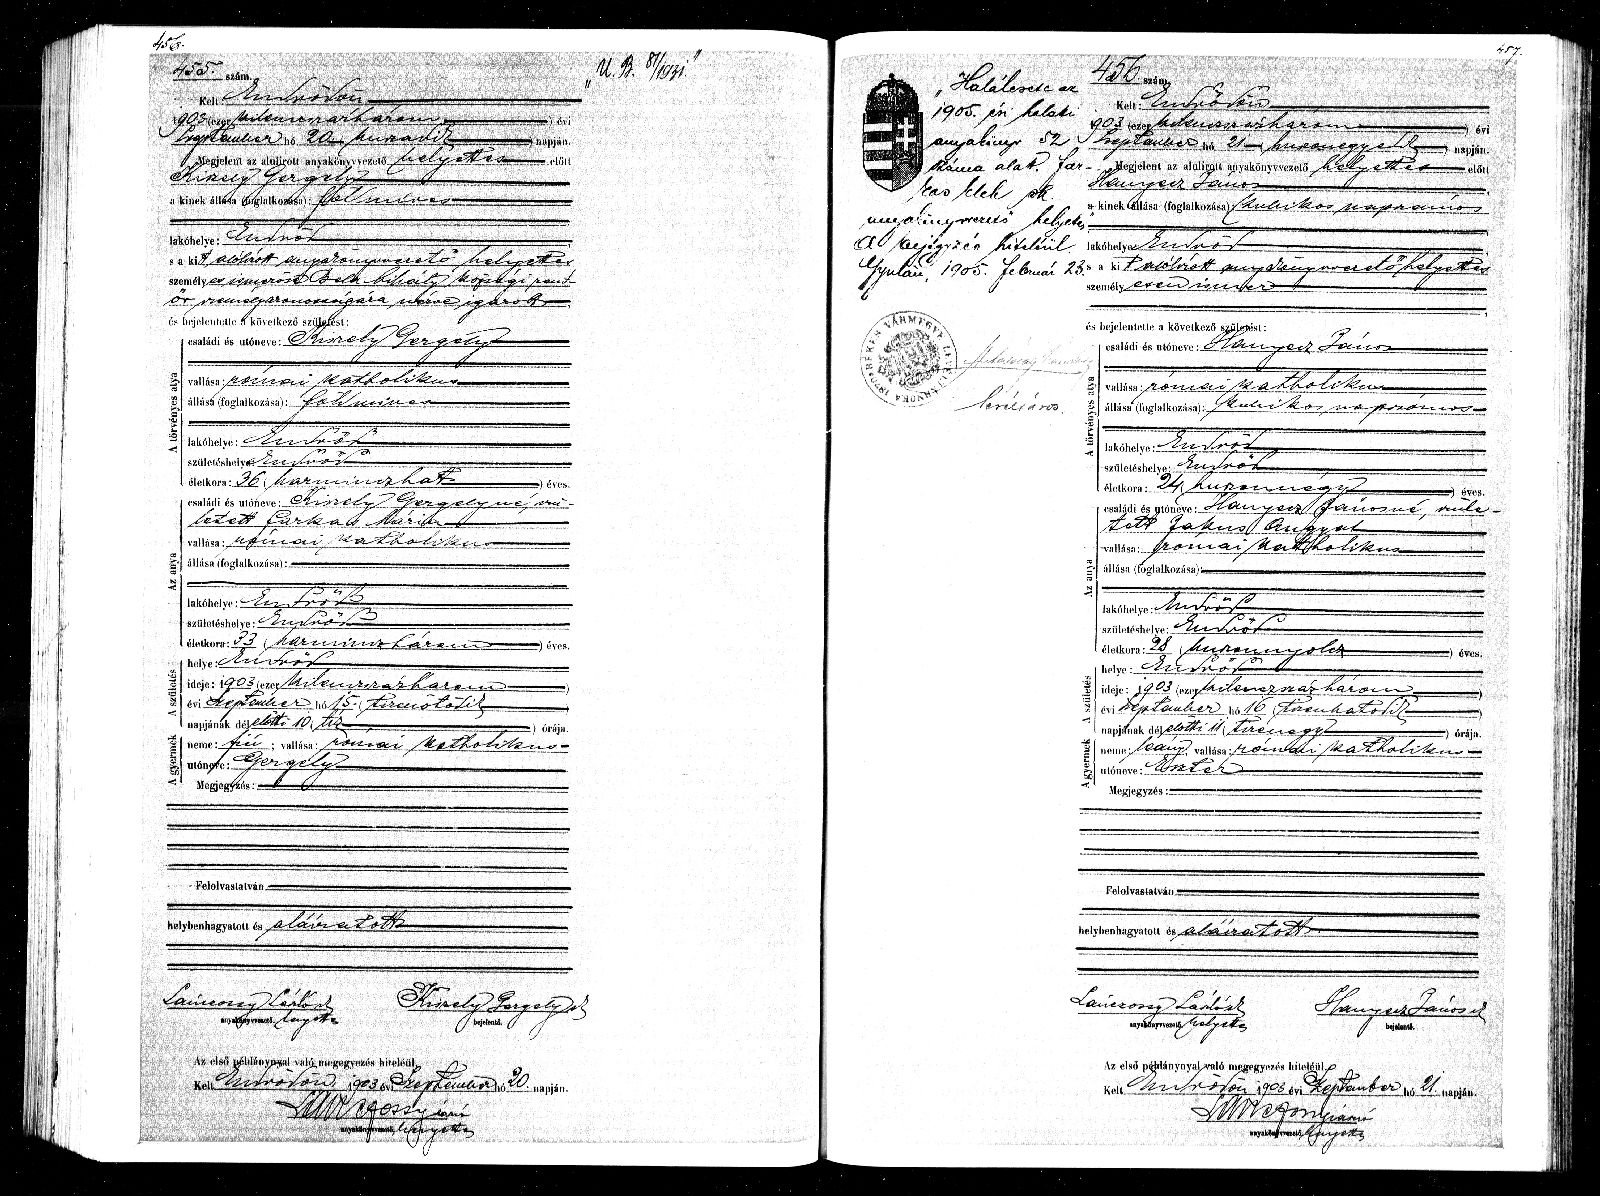 456.
455. szám.
"U. B. 81/1931."
Kelt Endrődön
1903 (ezer kilenczszázhárom) évi
Szeptember hó 20 (huszadik) napján.
Megjelent az alulirott anyakönyvvezető helyettes előtt
Kiszely Gergely
a kinek állása (foglalkozása): földmives
lakóhelye: Endrőd
s a kit alólírott anyakönyvvezető helyettes
személyesen ismerős Béla Mihály községi rend-
őr személyazonosságára nézve igazolt
és bejelentette a következő születést:
A törvényes atya
családi és utóneve: Kiszely Gergely
vallása: római katholikus
állása (foglalkozása): földmives
lakóhelye: Endrőd
születéshelye: Endrőd
életkora: 36 (harminczhat) éves.
Az anya
családi és utóneve: Kiszely Gergelyné, szü-
letett Farkas Mária
vallása: római katholikus
állása (foglalkozása):
lakóhelye: Endrőd
születéshelye: Endrőd
életkora: 33 (harminczhárom) éves.
A születés
helye: Endrőd
ideje: 1903 (ezer kilenczszázhárom)
évi szeptember hó 15. (tizenötödik)
napjának dél előtti 10 (tíz) órája.
A gyermek
neme: fiú; vallása: római katholikus
utóneve: Gergely
Megjegyzés:
Felolvastatván
helybenhagyatott és aláiratott
Lánczossy László Kiszely Gergely
anyakönyvvezető helyettes bejelentő.
Az első példánynyal való megegyezés hiteléül,
Kelt Endrődön, 1903 évi Szeptember hó 20. napján.
anyakönyvvezető helyettes
457.
456 szám.
"Halálesete az
1905. évi halotti
anyakönyv 52
száma alatt. Far-
kas Elek sk.
anyakönyvvezető helyettes"
A bejegyzés hiteléül
Gyulán, 1905. február 23.
BÉKÉS VÁRMEGYE LEVÉLTÁRNOKA
levéltáros.
Kelt: Endrődön
1903 (ezer kilenczszázhárom) évi
Szeptember hó 21 (huszonegyedik) napján.
Megjelent az alulirott anyakönyvvezető helyettes előtt
Hanyecz János
a kinek állása (foglalkozása) kubikos napszámos
lakóhelye Endrőd
s a kit alólírott anyakönyvvezető helyettes
személyesen ismer
és bejelentette a következő születést:
A törvényes atya
családi és utóneve: Hanyecz János
vallása: római katholikus
állása (foglalkozása): kubikos napszámos
lakóhelye: Endrőd
születéshelye: Endrőd
életkora: 24 (huszonnégy) éves.
Az anya
családi és utóneve: Hanyecz Jánosné, szüle-
tett Jakus Angyal
vallása: római katholikus
állása (foglalkozása):
lakóhelye: Endrőd
születéshelye: Endrőd
életkora: 28 (huszonnyolcz) éves.
A születés
helye: Endrőd
ideje: 1903 (ezer kilenczszázhárom)
évi szeptember hó 16 (tizenhatodik)
napjának dél előtti 11 (tizenegy) órája.
A gyermek
neme: leány; vallása: római katholikus
utóneve: Eszter
Megjegyzés:
Felolvastatván
helybenhagyatott és aláiratott
Lánczossy László Hanyecz János
anyakönyvvezető helyettes bejelentő.
Az első példánynyal való megegyezés hiteléül
Kelt Endrődön, 1903 évi Szeptember hó 21. napján.
anyakönyvvezető helyettes